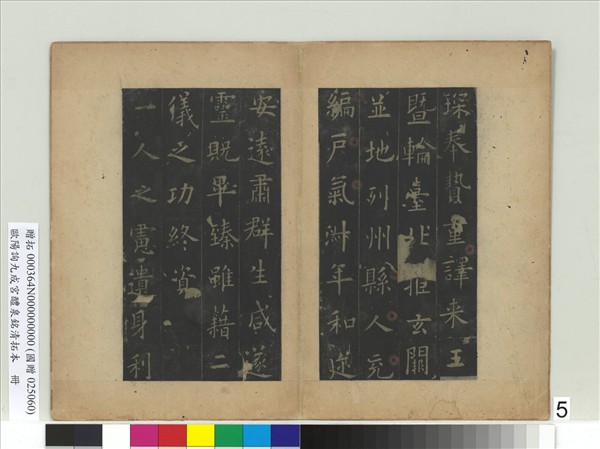 琛奉贄重譯来王
暨輪臺北拒玄闕
並地列州縣人充
編戶氣淑年和迩
安遠肅群生咸遂
靈貺畢臻雖藉二
儀之功終資
一人之慮遺身利
贈拓 000364N000000000 (國贈 025060)
歐陽詢九成宮醴泉銘清拓本 冊
5